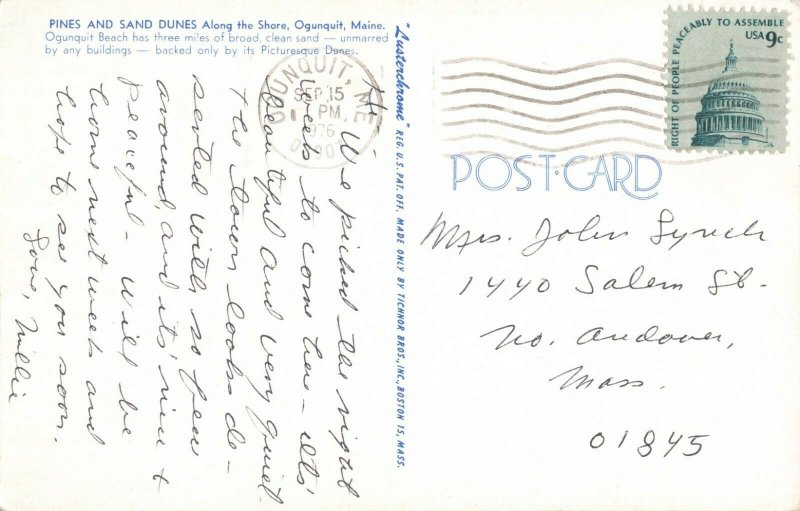 PINES AND SAND DUNES Along the Shore, Ogunquit, Maine.
Ogunquit Beach has three miles of broad, clean sand — unmarred
by any buildings — backed only by its Picturesque Dunes.
Hi-
We picked the right
week to come here - its'
beautiful and very quiet
The town looks de-
serted with so few
around and its' nice &
peaceful - will be
home next week and
hope to see you soon.
Love, Millie
"Lusterchrome" REG. U.S. PAT. OFF. MADE ONLY BY TICHNOR BROS., INC., BOSTON 15, MASS.
OGUNQUIT, ME.
SEP 15
PM
1976
RIGHT OF PEOPLE PEACEABLY TO ASSEMBLE
USA 9c
POST·CARD
Mrs. John Lynch
1440 Salem St.
No. Andover,
Mass.
01845